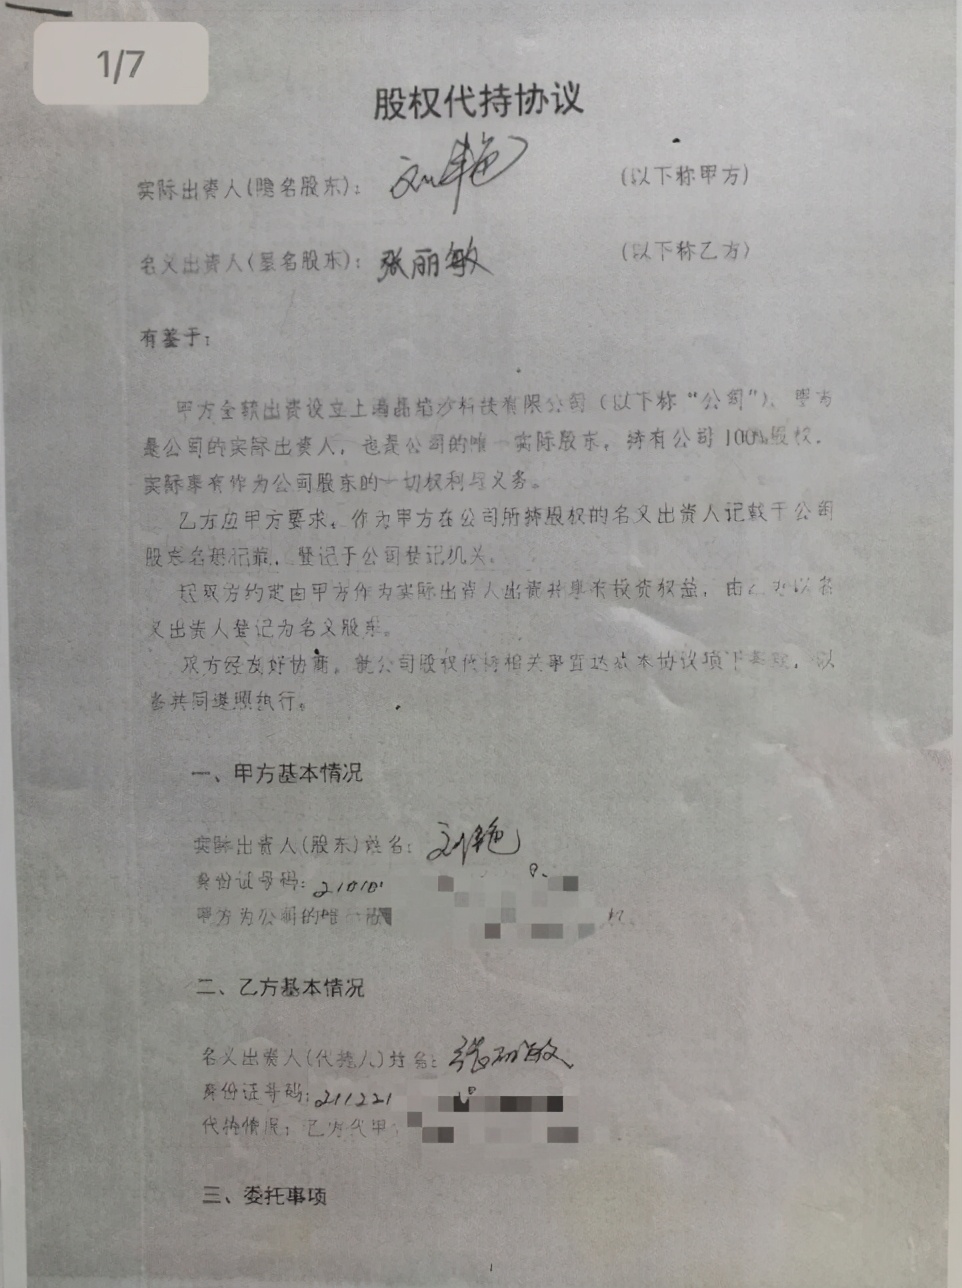 1/7
股权代持协议
实际出资人(隐名股东): 刘艳 (以下称甲方)
名义出资人(显名股东): 张丽敏 (以下称乙方)
有鉴于:
甲方全额出资设立上海晶焰沙科技有限公司(以下称“公司”)，甲方
是公司的实际出资人，也是公司的唯一实际股东，持有公司100%股权，
实际享有作为公司股东的一切权利与义务。
乙方应甲方要求，作为甲方在公司所持股权的名义出资人记载于公司
股东名册记载，登记于公司登记机关。
经双方约定由甲方作为实际出资人出资并享有投资权益，由乙方以名
义出资人登记为名义股东。
双方经友好协商，就公司股权代持相关事宜达成本协议项下条款，以
备共同遵照执行。
一、甲方基本情况
实际出资人(股东)姓名: 刘艳
身份证号码: 21010
甲方为公司的唯一股
二、乙方基本情况
名义出资人(代持人)姓名: 张丽敏
身份证号码: 211221
代持情况: 乙方代甲
三、委托事项
1